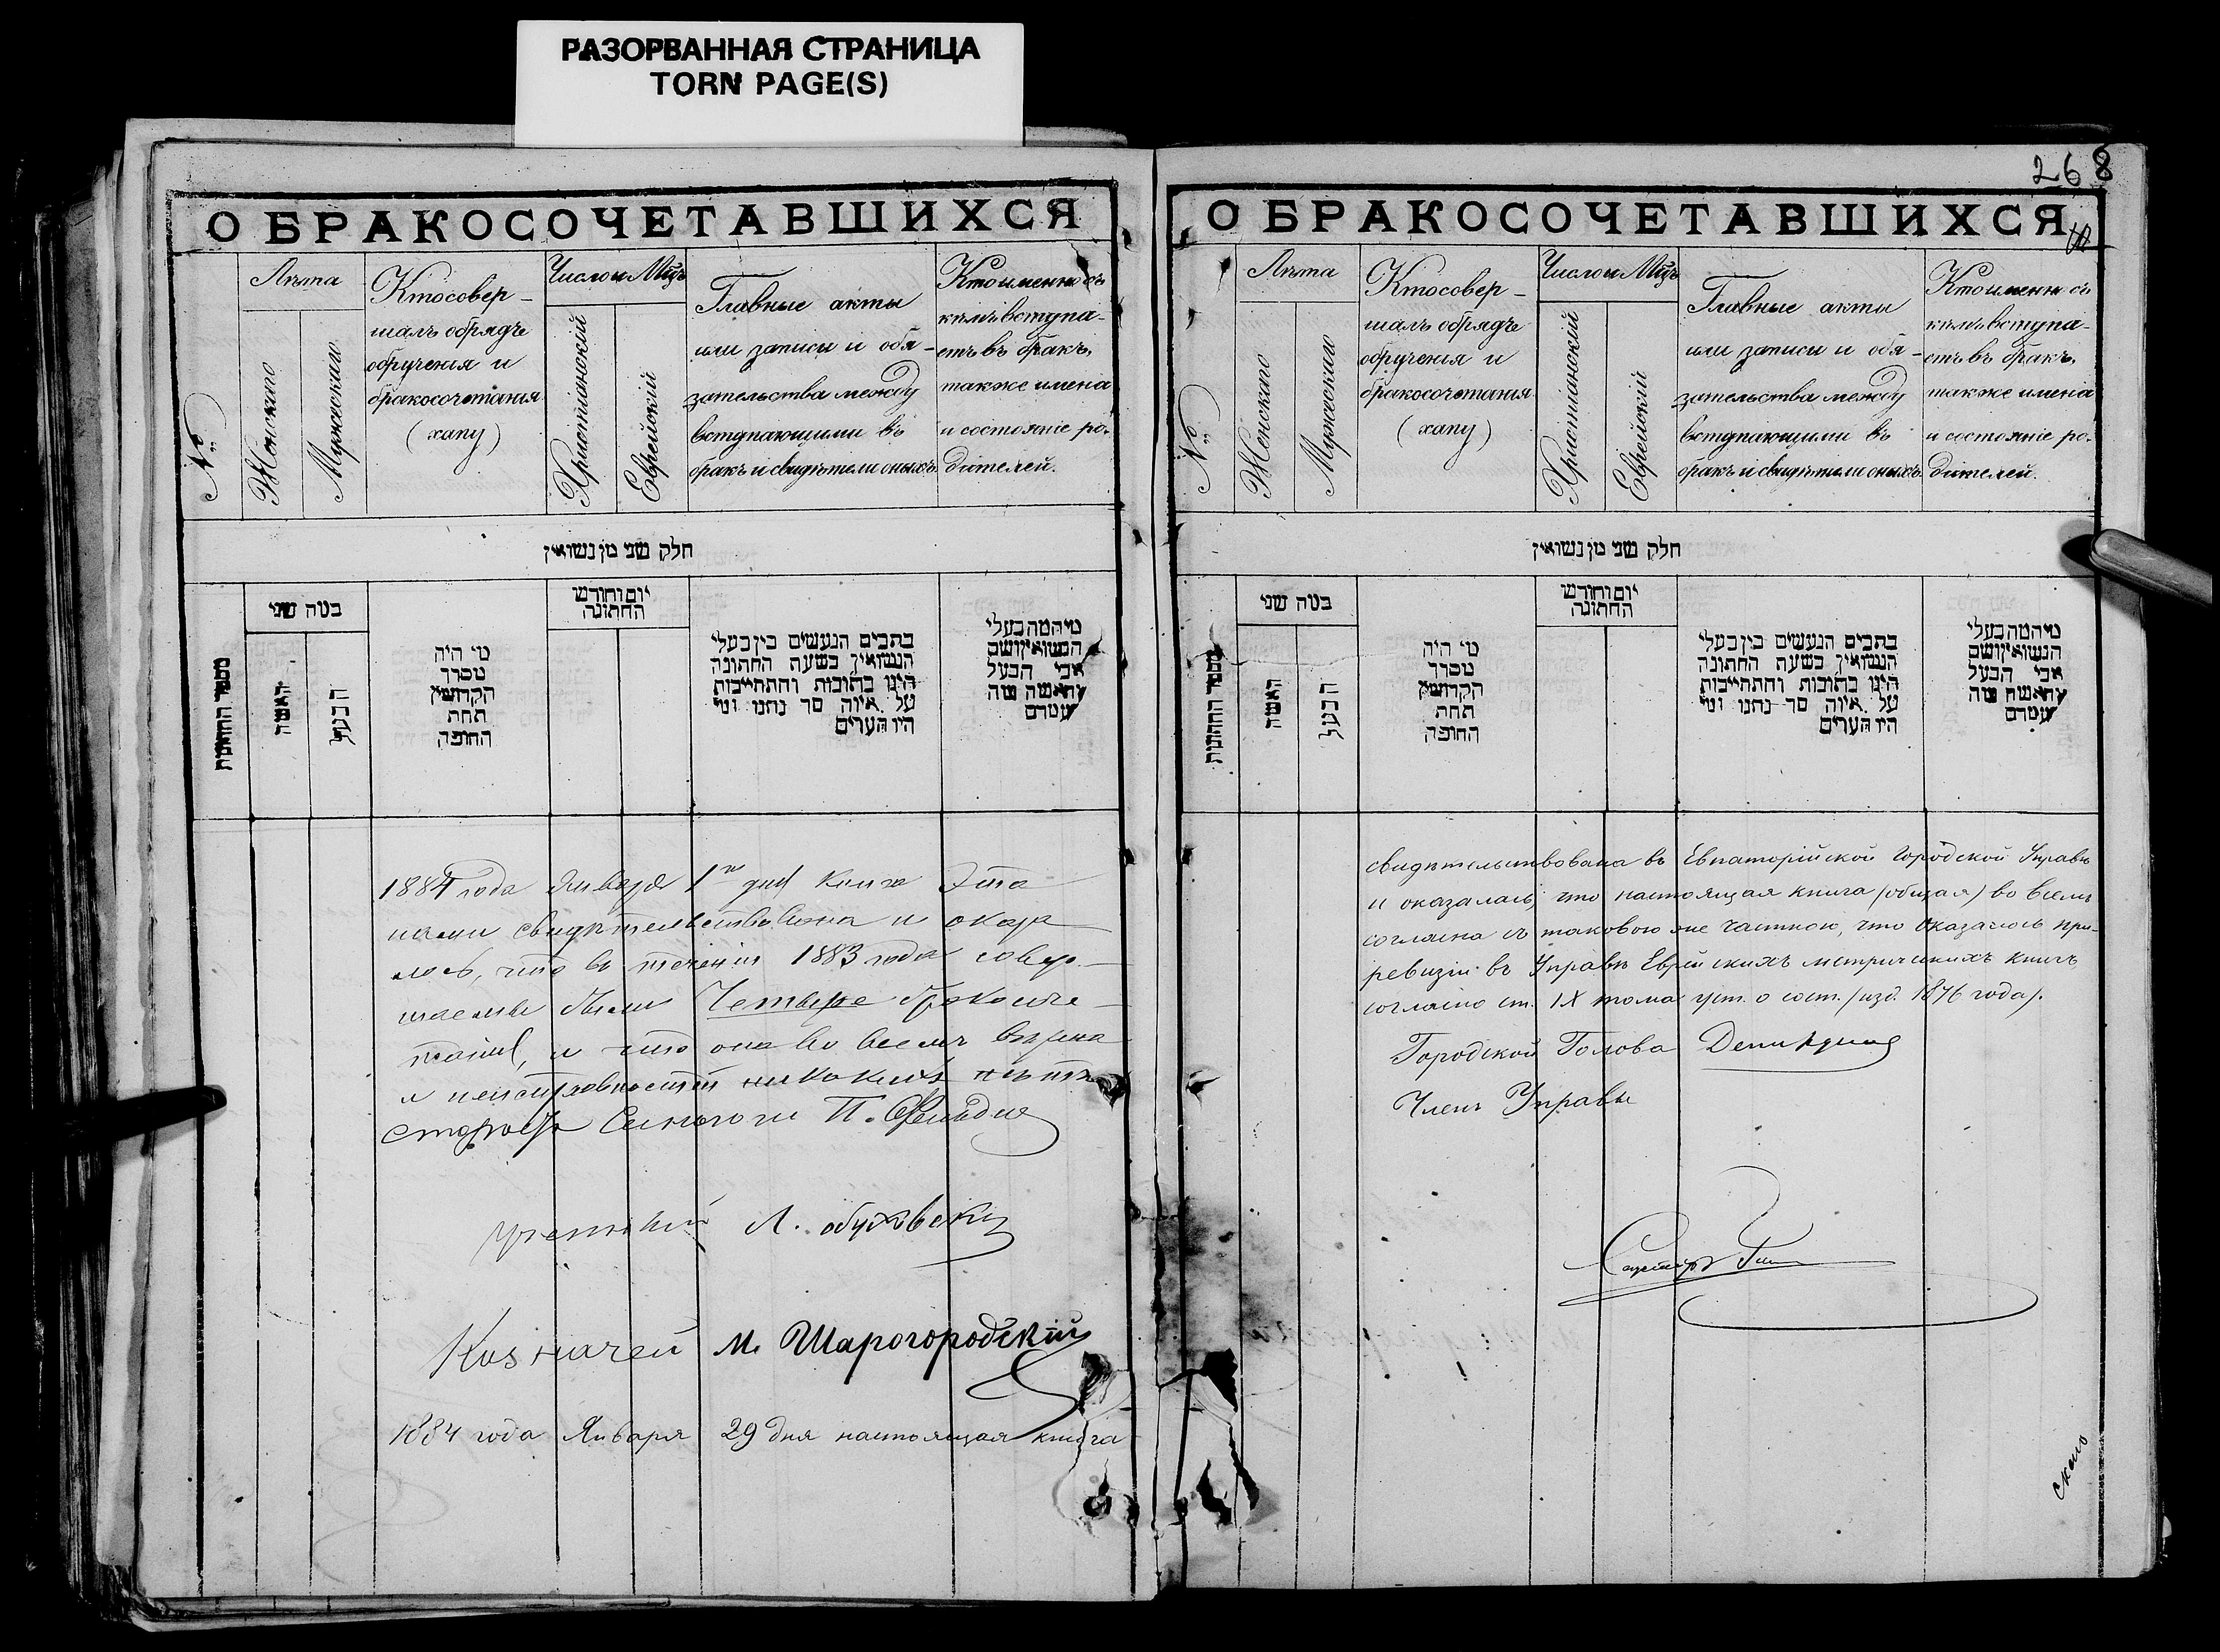 РАЗОРВАННАЯ СТРАНИЦА
TORN PAGE(S)
О БРАКОСОЧЕТАВШИХСЯ
№
Лѣта
Женскаго
Мужескаго
Кто совер-
шалъ обрядъ
обрученія и
бракосочетанія
(хапу)
Число и Мцъ
Христіанскій
Еврейскій
Главные акты
или записи и обя-
зательства между
вступающими въ
бракъ и свидѣтели оныхъ
Кто именно съ
кѣмъ вступа-
етъ въ бракъ,
также имена
и состояніе ро-
дителей.
חלק שני מן נשואין
האשה
הבעל
מי היה
מסדר
הקדושין
תחת
החופה
יום וחודש
החתונה
בתבים הנעשים בין בעלי
הנשואין בשעת החתונה
הינו כתובות והתחייבות
על איזה סך נתנו ומי
היו העדים
1884 года Января 1го дня книга эта
нами свидѣтельствована и оказа
лось, что въ теченіи 1883 года совер-
шаемы были Четыре бракосоче-
танія, и что она во всемъ вѣрна
и неисправностей никакихъ нѣтъ
Староста Синагоги П.
Ученый Л. Обуховский
Казначей М. Шарогородскій
1884 года Января 29 дня настоящая книга
268
О БРАКОСОЧЕТАВШИХСЯ
№
Лѣта
Женскаго
Мужескаго
Кто совер-
шалъ обрядъ
обрученія и
бракосочетанія
(хапу)
Число и Мцъ
Христіанскій
Еврейскій
Главные акты
или записи и обя-
зательства между
вступающими въ
бракъ и свидѣтели оныхъ
Кто именно съ
кѣмъ вступа-
етъ въ бракъ,
также имена
и состояніе ро-
дителей.
חלק שני מן נשואין
האשה
הבעל
מי היה
מסדר
הקדושין
תחת
החופה
יום וחודש
החתונה
בתבים הנעשים בין בעלי
הנשואין בשעת החתונה
הינו כתובות והתחייבות
על איזה סך נתנו ומי
היו העדים
свидѣтельствована въ Евпаторійской Городской Управѣ
и оказалась, что настоящая книга (общая) во всемъ
согласна съ таковою же частною, что оказалось при
ревизіи въ Управѣ Еврейскихъ метрическихъ книгъ,
согласно ст. IX тома уст. о сост. (изд. 1876 года).
Городской Голова
Членъ Управы